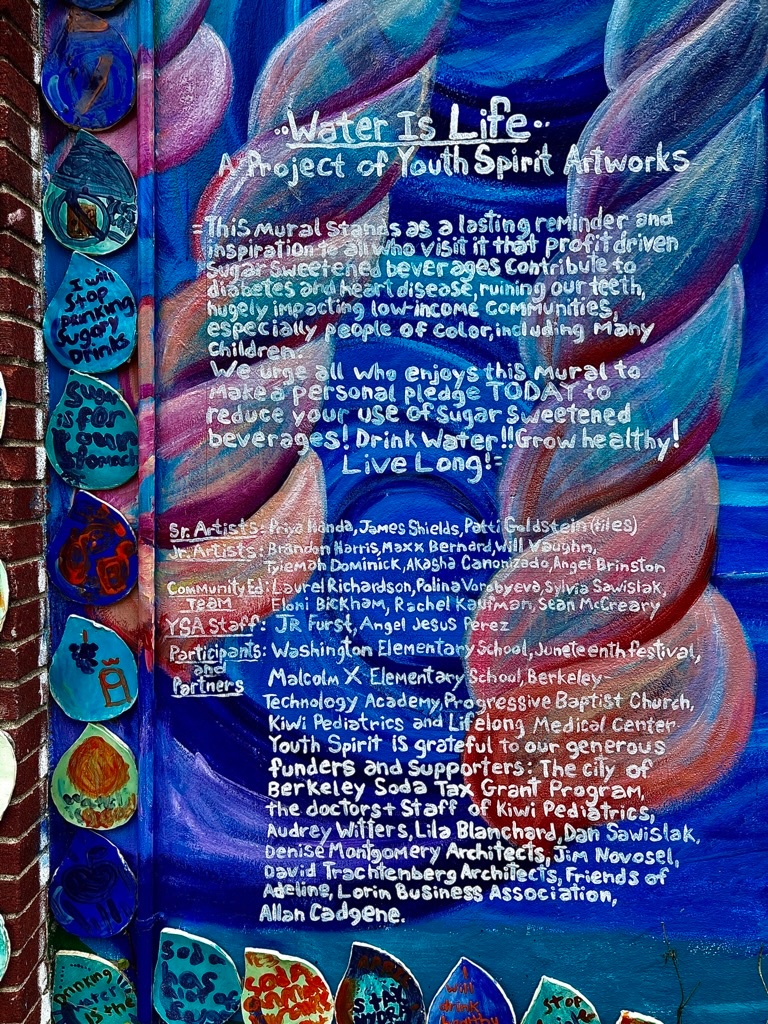 ··Water Is Life··
A Project of Youth Spirit Artworks
=This mural stands as a lasting reminder and
inspiration to all who visit it that profit driven
sugar sweetened beverages contribute to
diabetes and heart disease, ruining our teeth,
hugely impacting low-income communities,
especially people of color, including many
children.
We urge all who enjoys this mural to
make a personal pledge TODAY to
reduce your use of sugar sweetened
beverages! Drink Water!! Grow healthy!
Live Long!=
Sr. Artists: Priya Handa, James Shields, Patti Goldstein (tiles)
Jr. Artists: Brandon Harris, Maxx Bernard, Will Vaughn,
Tyiemah Dominick, Akasha Canonizado, Angel Brinston
Community Ed: Laurel Richardson, Polina Vorobyeva, Sylvia Sawislak,
Team Eloni Bickham, Rachel Kaufman, Sean McCreary
YSA Staff: JR Furst, Angel Jesus Perez
Participants: Washington Elementary School, Juneteenth festival,
and
Partners Malcolm X Elementary School, Berkeley-
Technology Academy, Progressive Baptist Church,
Kiwi Pediatrics and Lifelong Medical Center
Youth Spirit is grateful to our generous
funders and supporters: The city of
Berkeley Soda Tax Grant Program,
the doctors + staff of Kiwi Pediatrics,
Audrey Witters, Lila Blanchard, Dan Sawislak,
Denise Montgomery Architects, Jim Novosel,
David Trachtenberg Architects, Friends of
Adeline, Lorin Business Association,
Allan Cadgene.
I will
stop
drinking
sugary
drinks
Sugar
is for
your
stomach
Drinking
water
is the
soda
has
soda
I
will
drink
healthy
stop